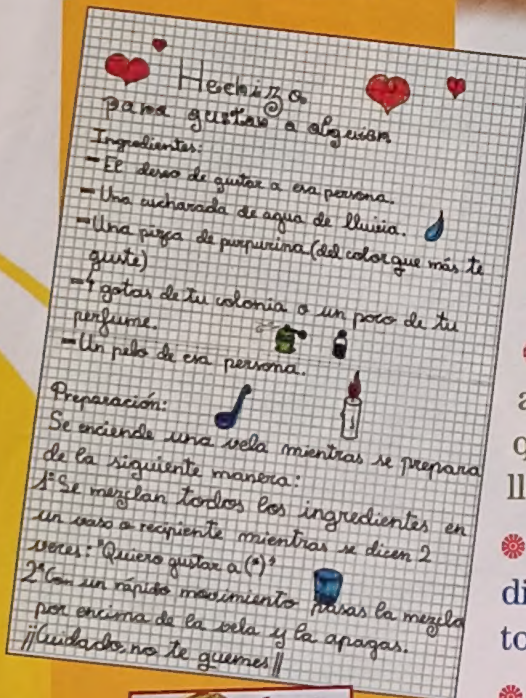 Hechizo
para gustar a alguien
Ingredientes:
-El deseo de gustar a esa persona.
-Una cucharada de agua de lluvia.
-Una pizca de purpurina (del color que más te
guste)
-4 gotas de tu colonia o un poco de tu
perfume.
-Un pelo de esa persona.
Preparación:
Se enciende una vela mientras se prepara
de la siguiente manera:
1º Se mezclan todos los ingredientes en
un vaso o recipiente mientras se dicen 2
veces: "Quiero gustar a (*)"
2º Con un rápido movimiento pasas la mezcla
por encima de la vela y la apagas.
¡¡Cuidado, no te quemes!!
a
q
ll
di
to